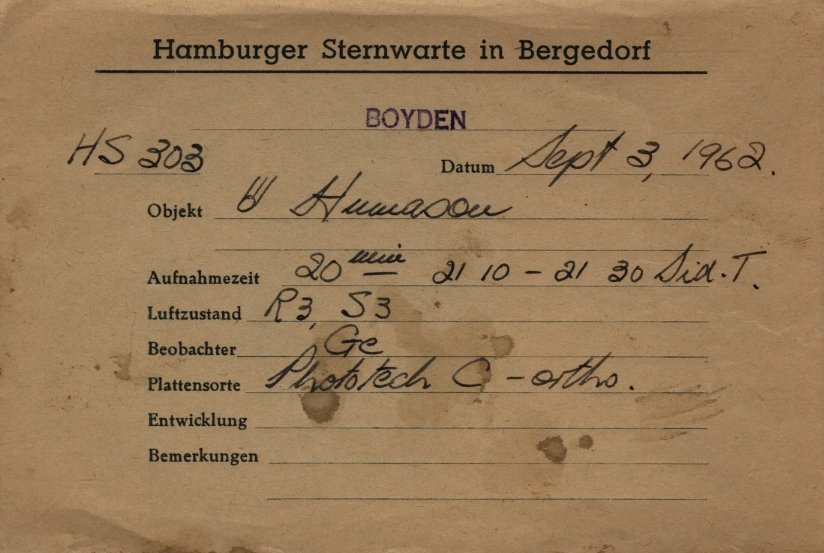 Hamburger Sternwarte in Bergedorf
BOYDEN
HS 303 Datum Sept 3, 1962.
Objekt Humason
Aufnahmezeit 20 min 21 10 - 21 30 Sid. T.
Luftzustand R3, S3
Beobachter Ge
Plattensorte Phototech G - ortho.
Entwicklung
Bemerkungen